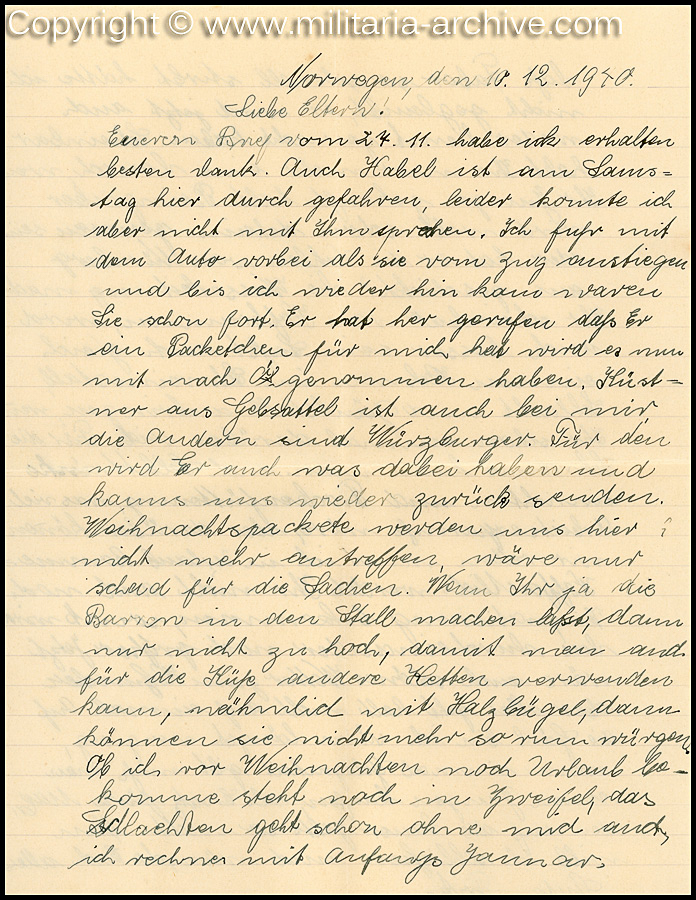 Copyright © www.militaria-archive.com
Norwegen, den 10.12.1940.
Liebe Eltern!
Euerern Brief vom 24.11. habe ich erhalten
besten dank. Auch Habel ist am Sams=
tag hier durch gefahren, leider konnte ich
aber nicht mit Ihm sprechen. Ich fuhr mit
dem Auto vorbei als sie vom Zug austiegen
und bis ich wieder hin kam waren
Sie schon fort. Er hat her gerufen daß Er
ein Packetchen für mich hat wird es nun
mit nach genommen haben. Küst=
ner aus Gebsattel ist auch bei mir,
die Andern sind Würzburger. Für den
wird Er auch was dabei haben und
kanns uns wieder zurück senden.
Weihnachtspackete werden uns hier
nicht mehr antreffen, wäre nur
schad für die Sachen. Wenn Ihr ja die
Barren in den Stall machen laßt, dann
nur nicht zu hoch, damit man auch
für die Kühe andere Ketten verwenden
kann, nähmlich mit Halzbügel, dann
können sie nicht mehr so rum würgen.
Ob ich vor Weihnachten noch Urlaub be-
komme steht noch in Zweifel, das
Schlachten geht schon ohne mich auch,
ich rechne mit Anfangs Januar.